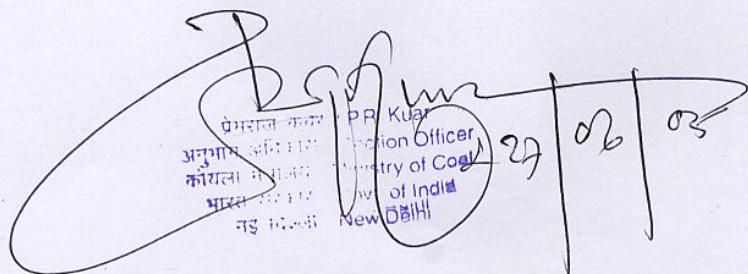 प्रेमराज कुवर P R Kuar
अनुभाग Section Officer
कोयला Ministry of Coal
भारत Govt of India
नई दिल्ली New Delhi
27/06/05